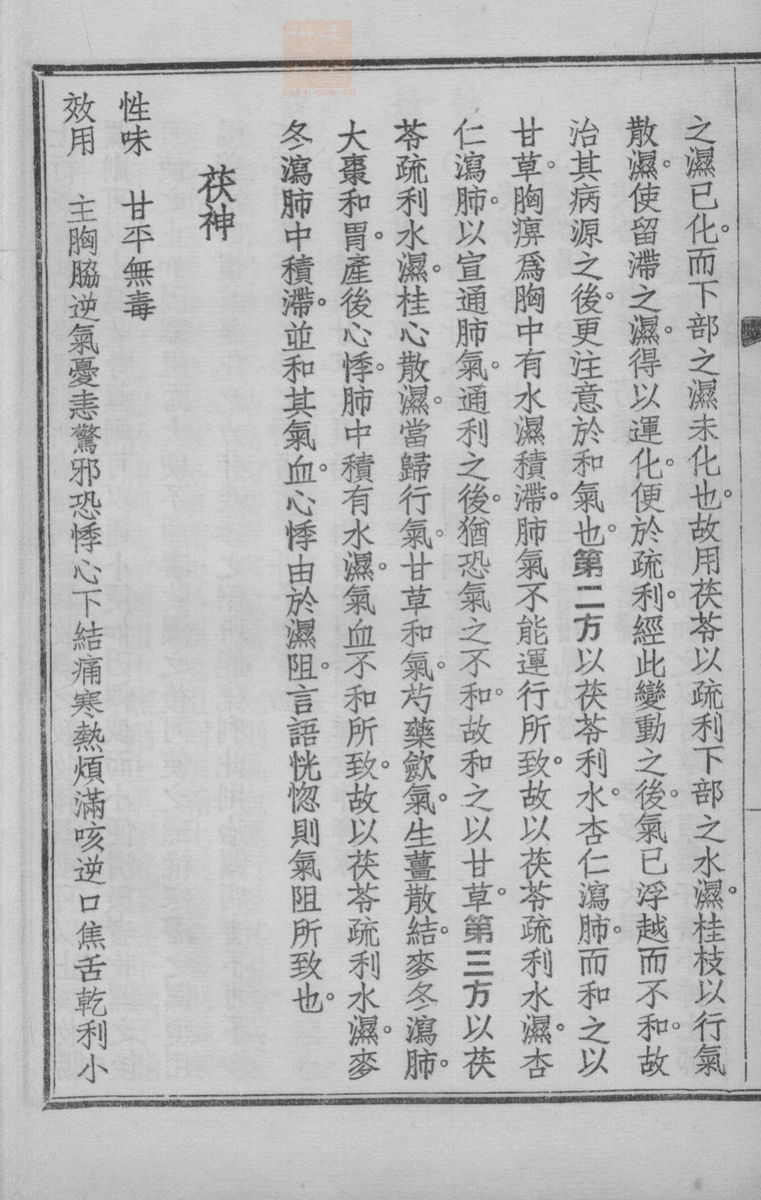 之濕已化。而下部之濕未化也。故用茯苓以疏利下部之水濕。桂枝以行氣
散濕。使留滯之濕。得以運化。便於疏利。經此變動之後。氣已浮越而不和。故
治其病源之後。更注意於和氣也。第二方以茯苓利水。杏仁瀉肺。而和之以
甘草。胸痹爲胸中有水濕積滯。肺氣不能運行所致。故以茯苓疏利水濕。杏
仁瀉肺。以宣通肺氣。通利之後。猶恐氣之不和。故和之以甘草。第三方以茯
苓疏利水濕。桂心散濕。當歸行氣。甘草和氣。芍藥歛氣。生薑散結。麥冬瀉肺。
大棗和胃。產後心悸。肺中積有水濕。氣血不和所致。故以茯苓疏利水濕。麥
冬瀉肺中積滯。並和其氣血。心悸由於濕阻。言語恍惚則氣阻所致也。
茯神
性味　甘平無毒
效用　主胸脇逆氣憂恚驚邪恐悸心下結痛寒熱煩滿咳逆口焦舌乾利小